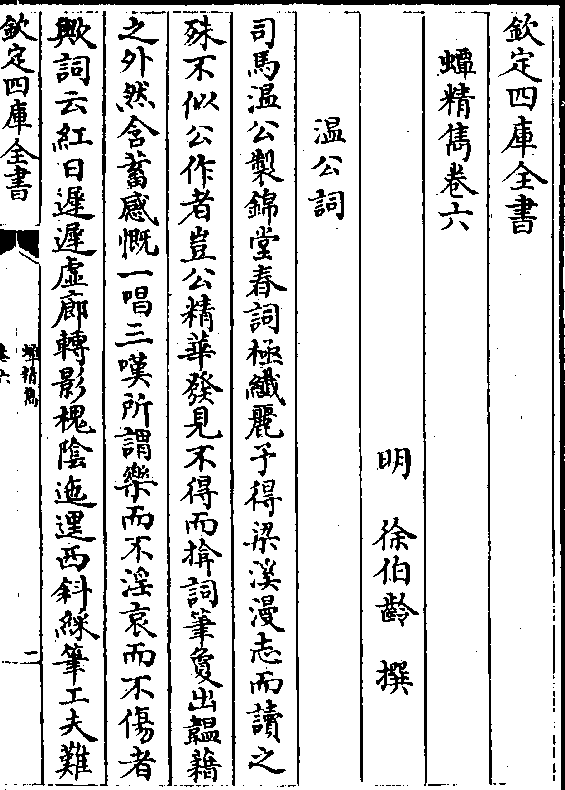 欽定四庫全書
蟫精雋卷六
明 徐伯齡 撰
温公詞
司馬温公製錦堂春詞極纖麗予得梁溪漫志而讀之
殊不似公作者豈公精華發見不得而揜詞筆夐出韞藉
之外然含蓄感慨一唱三嘆所謂樂而不淫哀而不傷者
歟詞云紅日遲遲虛廊轉影槐陰迤逕西斜綵筆工夫難
欽定四庫全書
蟫精雋
卷六
一